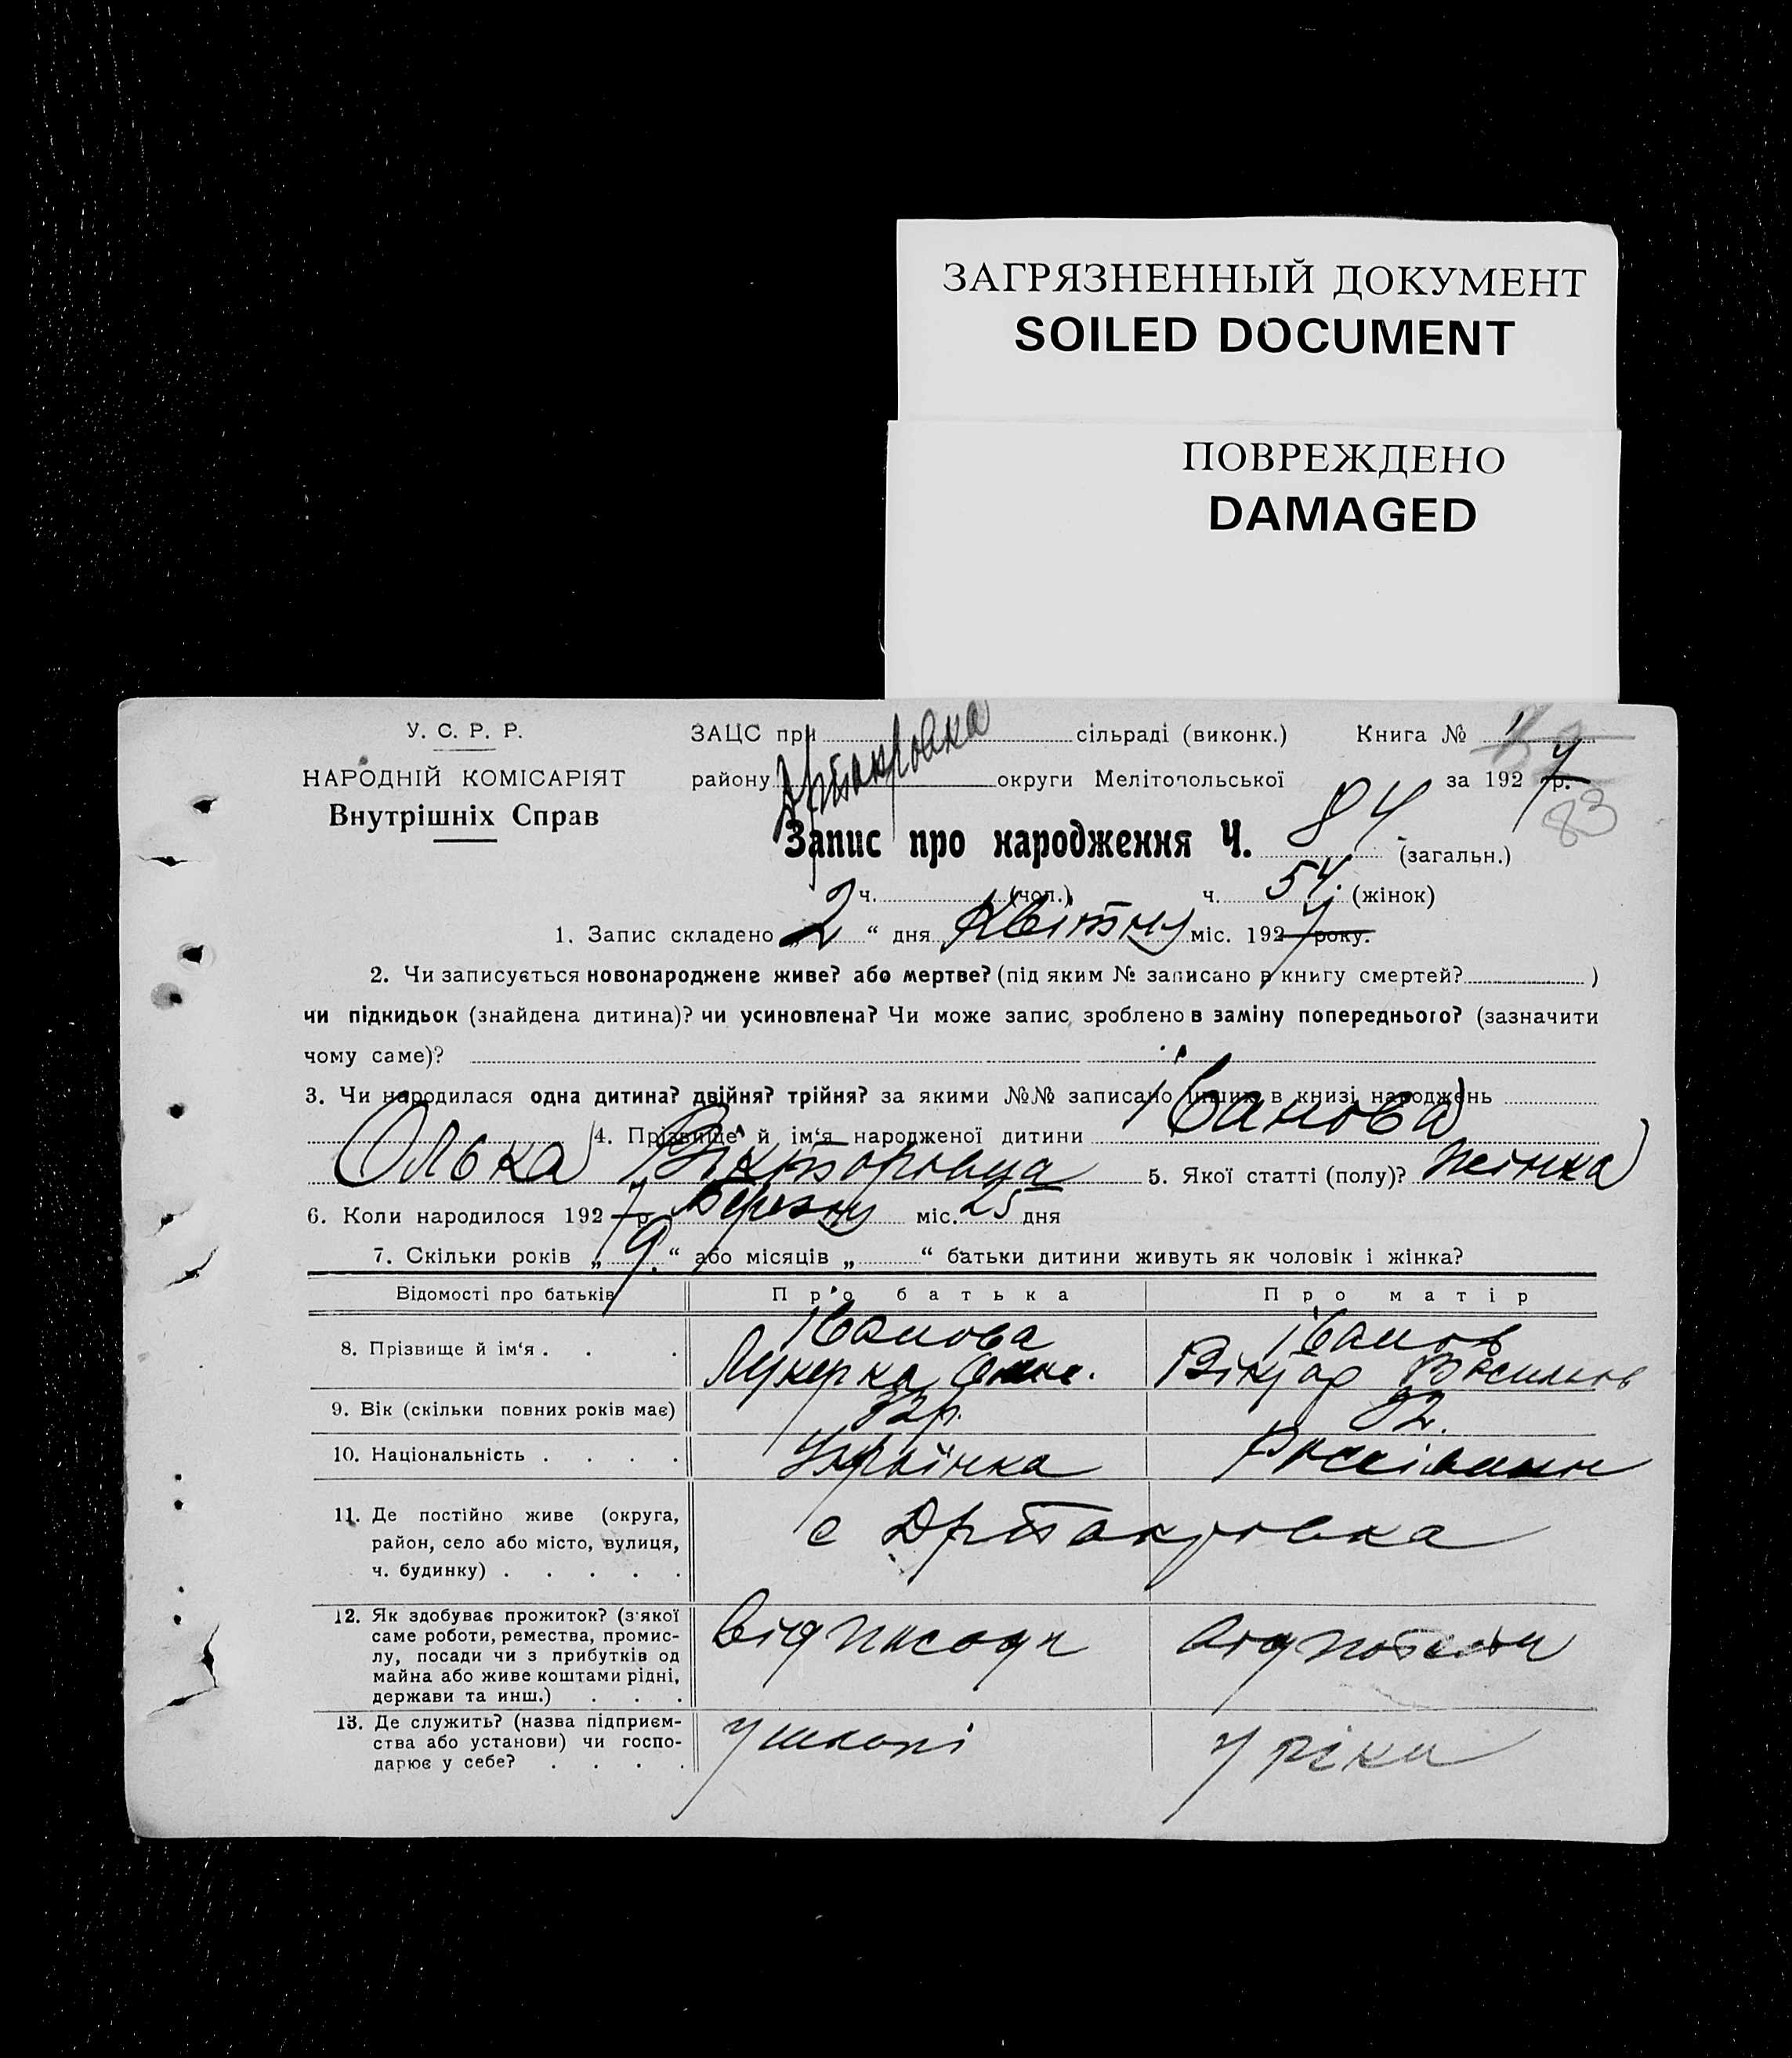 ЗАГРЯЗНЕННЫЙ ДОКУМЕНТ
SOILED DOCUMENT
ПОВРЕЖДЕНО
DAMAGED
У. С. Р. Р.
НАРОДНІЙ КОМІСАРІЯТ
Внутрішніх Справ
ЗАЦС при сільраді (виконк.) Книга № 1
району округи Мелітопольської за 1927 р.
83
Запис про народження Ч. 84 (загальн.)
ч. (чол.) ч. 54. (жінок)
1. Запис складено „2“ дня Квітня міс. 1927 року.
2. Чи записується новонароджене живе? або мертве? (під яким № записано в книгу смертей? )
чи підкидьок (знайдена дитина)? чи усиновлена? Чи може запис зроблено в заміну попереднього? (зазначити
чому саме)?
3. Чи народилася одна дитина? двійня? трійня? за якими №№ записано інших в книзі народжень
4. Прізвище й ім‘я народженої дитини Іванова
Олька Вікторівна 5. Якої статті (полу)? жінка
6. Коли народилося 1927 р. Березня міс. 25 дня
7. Скільки років „9.“ або місяців „ “ батьки дитини живуть як чоловік і жінка?
Відомості про батьків Про батька Про матір
8. Прізвище й ім‘я . . . Іванова Іванов
Лукерка Віктор Васильов
9. Вік (скільки повних років має) 32р. 32.
10. Національність . . . . Українка
11. Де постійно живе (округа,
район, село або місто, вулиця,
ч. будинку) . . . . .
с
12. Як здобуває прожиток? (з‘якої
саме роботи, ремества, промис-
лу, посади чи з прибутків од
майна або живе коштами рідні,
держави та инш.) . . .
від посади від посади
13. Де служить? (назва підприєм-
ства або установи) чи госпо-
дарює у себе? . . . .
у школі у